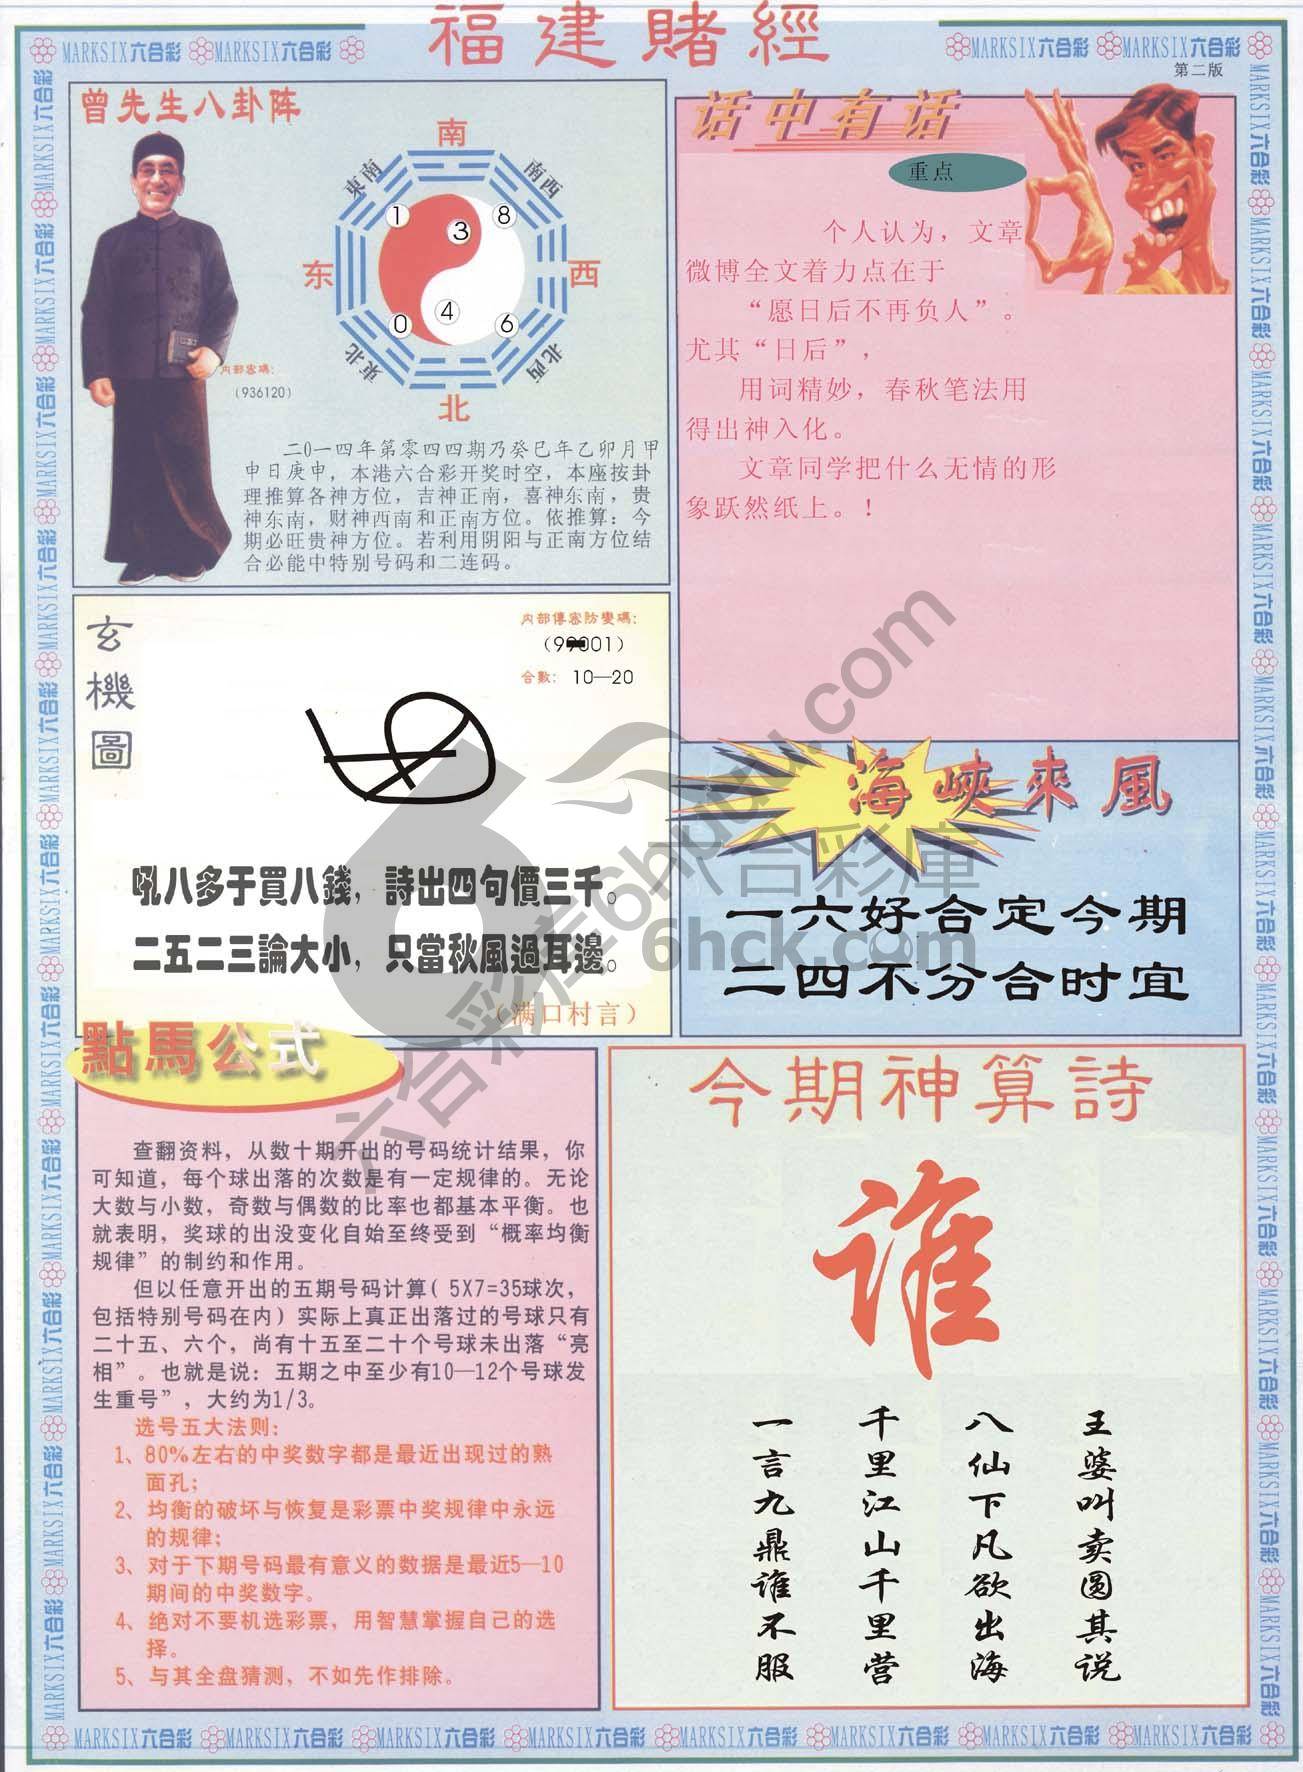 福建賭經
MARKSIX六合彩 MARKSIX六合彩
MARKSIX六合彩 MARKSIX六合彩
第二版
曾先生八卦阵
南
東南
南西
1
8
3
东
西
4
0
6
東北
北西
北
内部密碼：
（936120）
二0一四年第零四四期乃癸巳年乙卯月甲
申日庚申，本港六合彩开奖时空，本座按卦
理推算各神方位，吉神正南，喜神东南，贵
神东南，财神西南和正南方位。依推算：今
期必旺贵神方位。若利用阴阳与正南方位结
合必能中特别号码和二连码。
话中有话
重点
个人认为，文章
微博全文着力点在于
“愿日后不再负人”。
尤其“日后”，
用词精妙，春秋笔法用
得出神入化。
文章同学把什么无情的形
象跃然纸上。！
玄機圖
内部傳密防變碼：
合數： 10—20
吼八多于買八錢，詩出四句價三千。
二五二三論大小，只當秋風過耳邊。
（满口村言）
海峽來風
一六好合定今期
二四不分合时宜
點馬公式
查翻资料，从数十期开出的号码统计结果，你
可知道，每个球出落的次数是有一定规律的。无论
大数与小数，奇数与偶数的比率也都基本平衡。也
就表明，奖球的出没变化自始至终受到“概率均衡
规律”的制约和作用。
但以任意开出的五期号码计算（5X7=35球次，
包括特别号码在内）实际上真正出落过的号球只有
二十五、六个，尚有十五至二十个号球未出落“亮
相”。也就是说：五期之中至少有10—12个号球发
生重号”，大约为1/3。
选号五大法则：
1、80%左右的中奖数字都是最近出现过的熟
面孔；
2、均衡的破坏与恢复是彩票中奖规律中永远
的规律；
3、对于下期号码最有意义的数据是最近5—10
期间的中奖数字。
4、绝对不要机选彩票，用智慧掌握自己的选
择。
5、与其全盘猜测，不如先作排除。
今期神算詩
谁
王婆叫卖圆其说
八仙下凡欲出海
千里江山千里营
一言九鼎谁不服
六合彩库6hpudu.com
六合彩庫
6hck.com
MARKSIX六合彩 MARKSIX六合彩 MARKSIX六合彩 MARKSIX六合彩 MARKSIX六合彩 MARKSIX六合彩 MARKSIX六合彩 MARKSIX六合彩